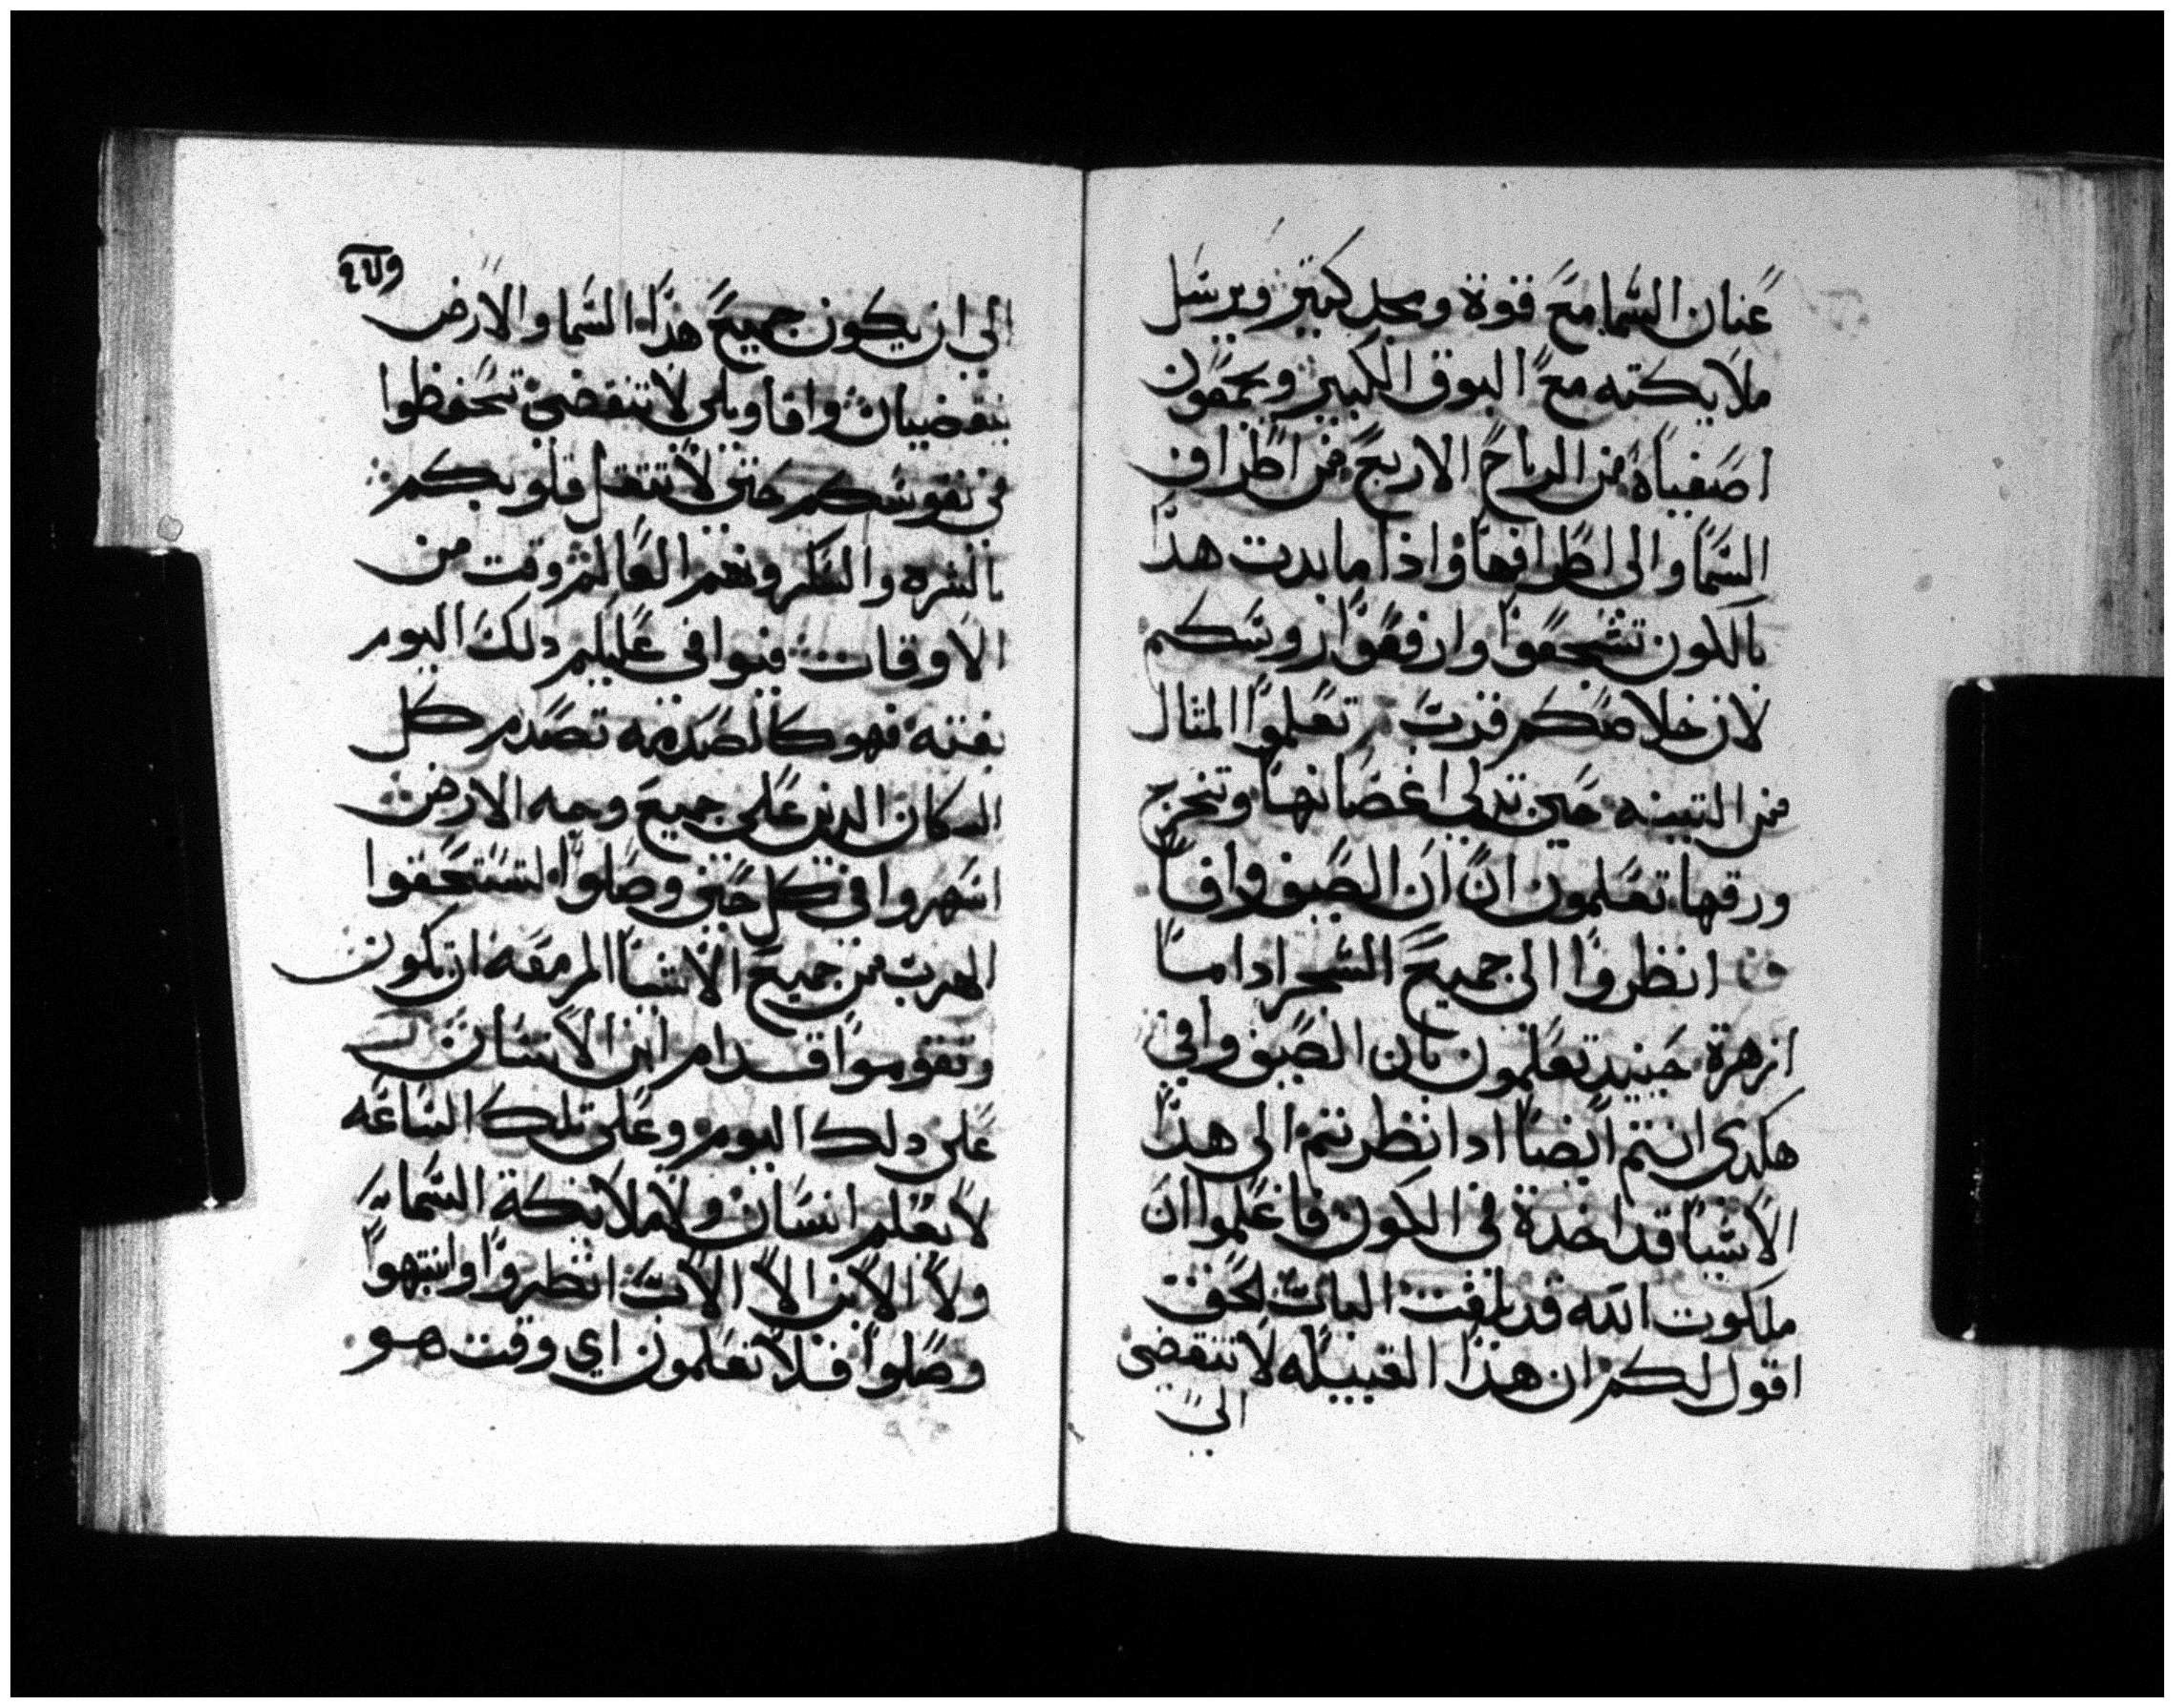 عنان السما مع قوة ومجد كبير ويرسل
ملايكته مع البوق الكبير ويجمعون
اصفياه من الرياح الاربع من اطراف
السما والى اطرافها واذا ما بدت هذا
بالكون تشجعوا وارفعوا روسكم
لان خلاصكم قرب تعلموا المثال
من التينه حين تدلى اغصانها وتخرج
ورقها تعلمون ان ان الصيف وافا
انظروا الى جميع الشجر اداما
ازهرة حينيد تعلمون بان الصيف وافى
هكدى انتم ايضا ادا نظرتم الى هذا
الاشيا قد اخدة في الكون فاعلموا ان
ملكوت الله قد بلغت الباب لحق
اقول لكم ان هذا القبيله لا تنقضى
الى
الى ان يكون جميع هذا السما والارض
ينقضيان واقاويلى لا تنقضى تحفظوا
في نفوسكم حتى لا تثقل قلوبكم
بالشره والسكر وهم العالم وقت من
الاوقات فيوافى عليكم دلك اليوم
بغته فهو كالصدمه تصدم كل
السكان الدين على جميع وجه الارض
اسهروا في كل حين وصلوا لتستحقوا
الهرب من جميع الاشيا المزمعه ان تكون
وتقوموا قدام ابن الانسان
على دلك اليوم وعلى تلك الساعه
لا يعلم انسان ولا ملايكة السما
ولا الابن الا الاب انظروا وانتبهوا
وصلوا فلا تعلمون اي وقت هو